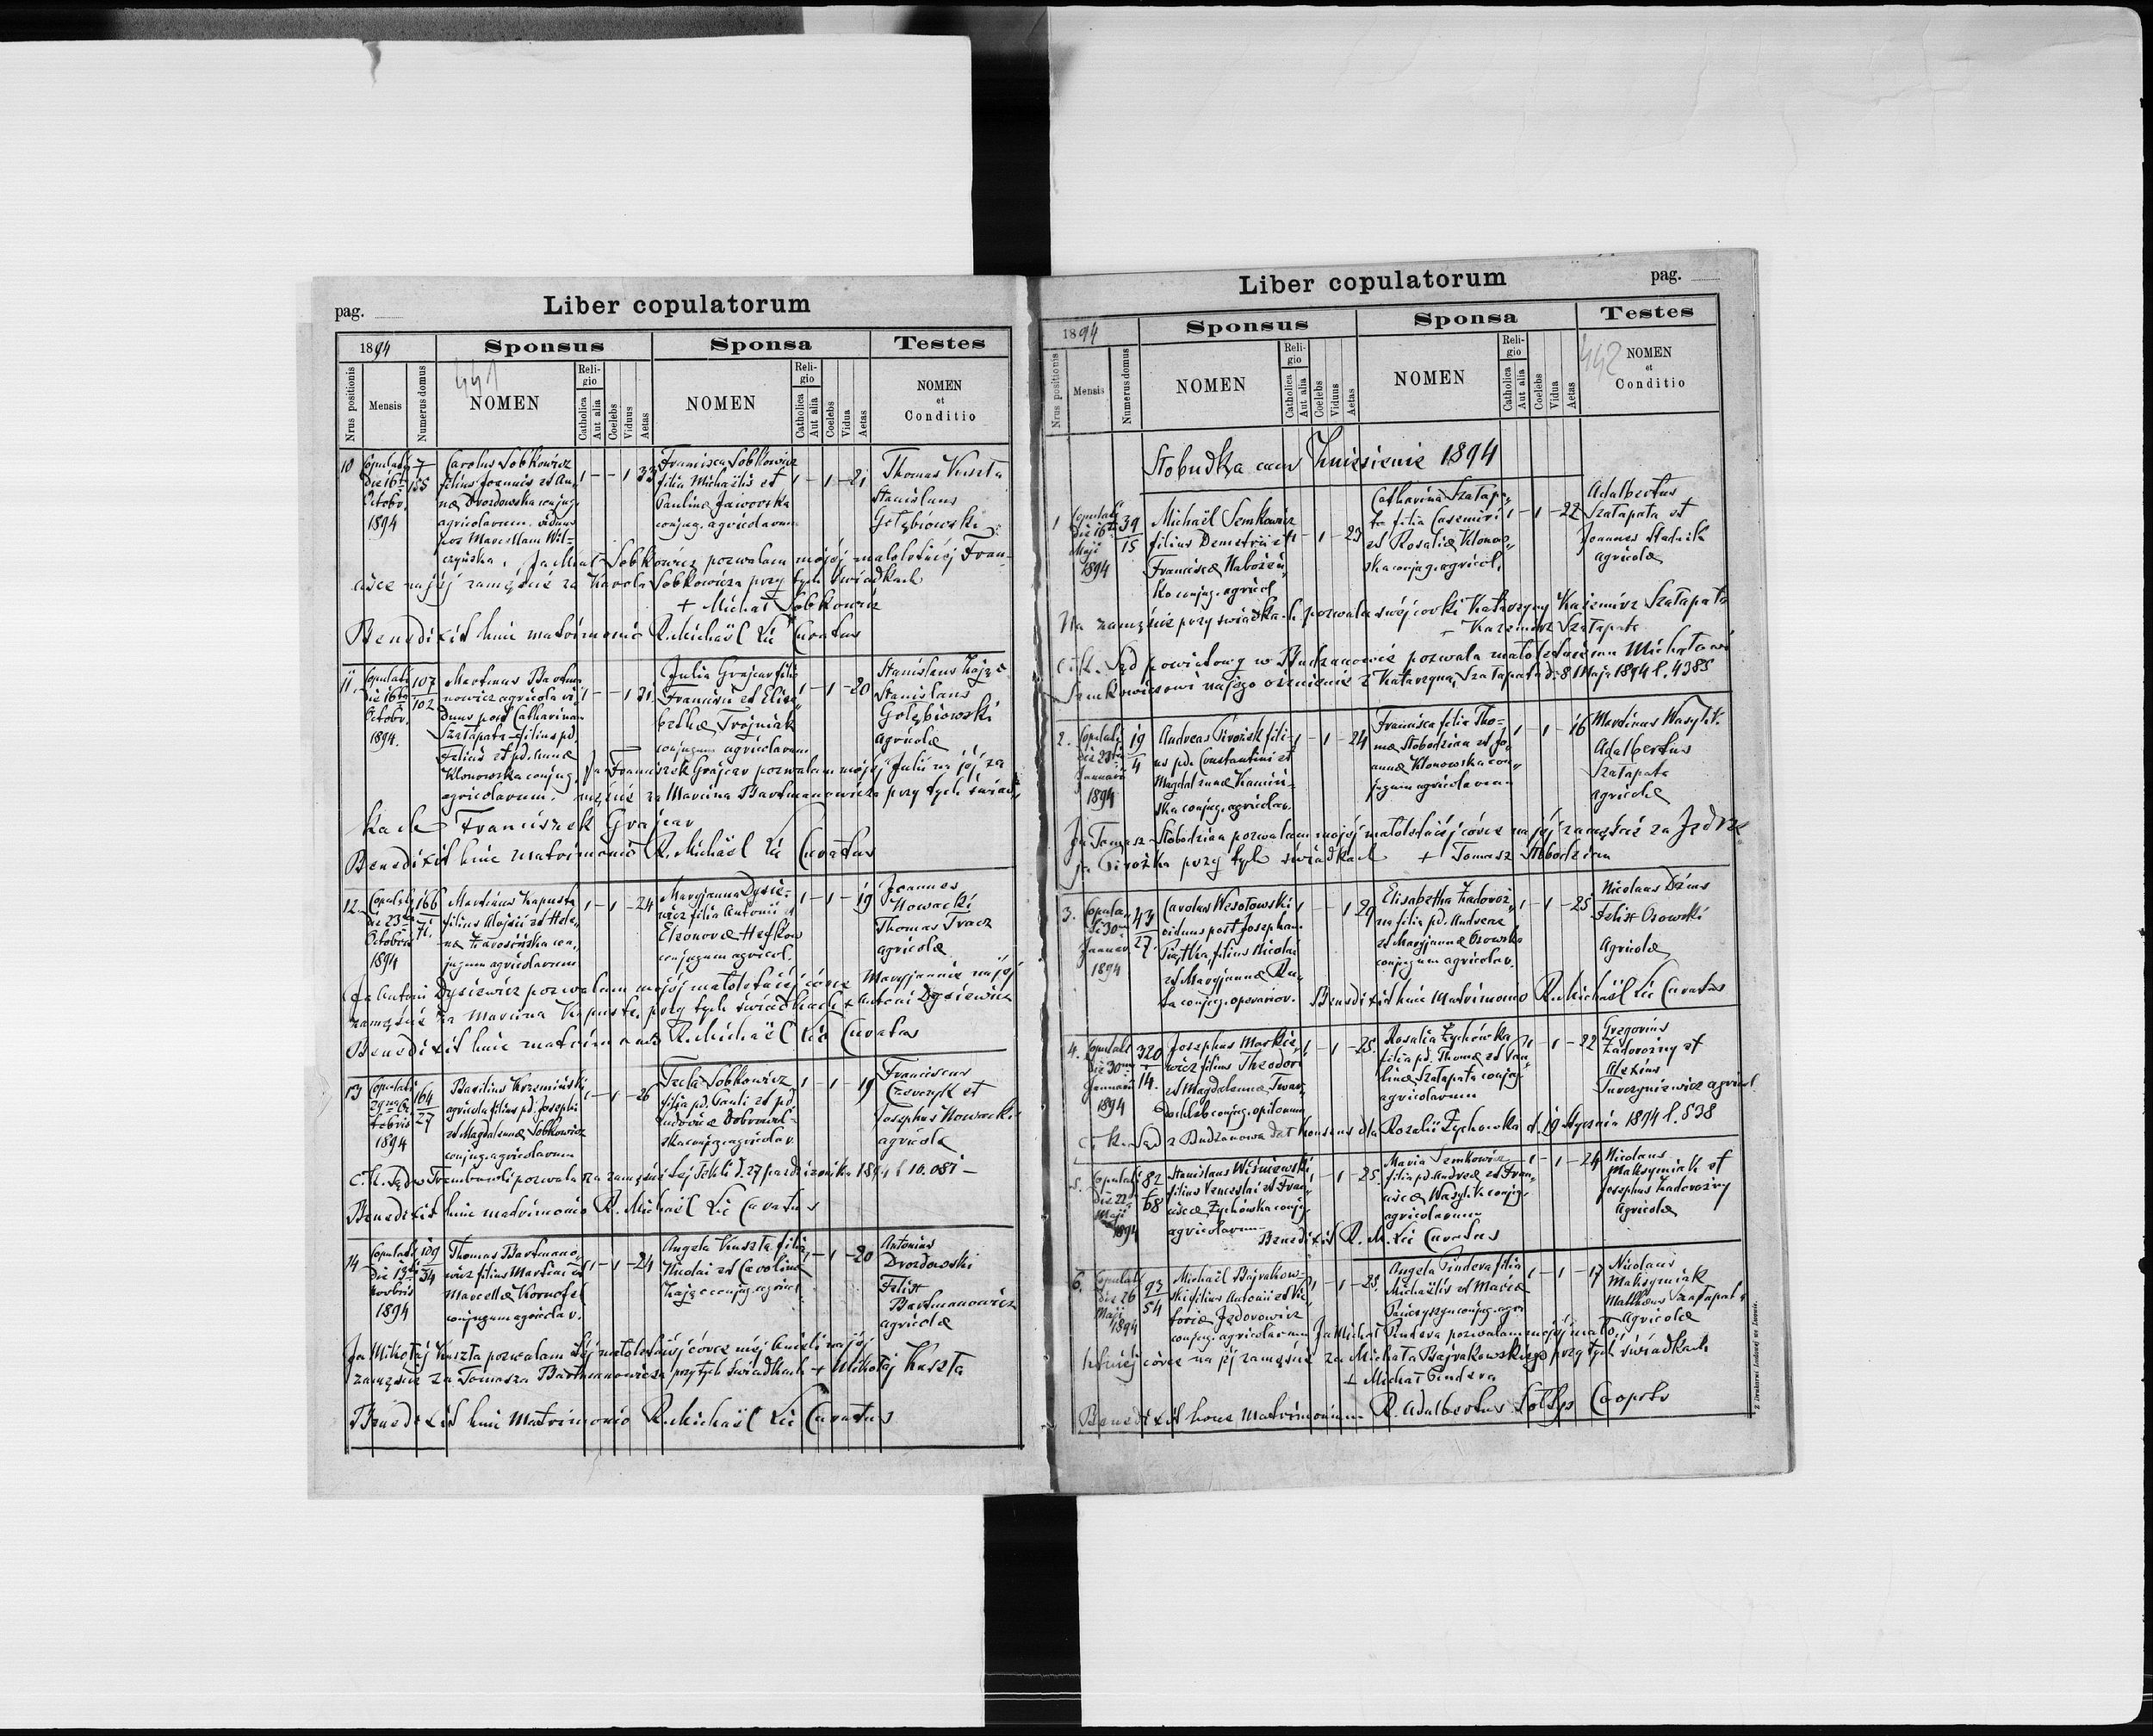 pag.
Liber copulatorum
1894
Sponsus
Sponsa
Testes
Nrus positionis
Mensis
Numerus domus
441
NOMEN
Religio
Catholica
Aut alia
Coelebs
Viduus
Aetas
NOMEN
Religio
Catholica
Aut alia
Coelebs
Vidua
Aetas
NOMEN
et
Conditio
10 Copulati die 16 Octobr. 1894
7
155
Carolus Sobkowicz
filius Joannis et An-
nae Drozdowska conjug.
agricolarum, viduus
post Marcellam Wil-
czyńska
1 - - 1 33
Francisca Sobkowicz
filia Michaëlis et
Paulinae Jaworska
conjug. agricolarum
1 - 1 - 21
Thomas Kuszta
Stanislaus
Gołębiowski
Ja Michał Sobkowicz pozwalam mojéj małoletniéj Fran-
cisce na jéj zamęście za Karola Sobkowicza przy tych świadkach
+ Michał Sobkowicz
Benedixit huic matrimonio R. Michaël Lic Curatus
11. Copulati die 16 Octobr. 1894.
107
102
Martinus Bartma-
nowicz agricola vi-
duus post Catharinam
Szałapata filius pd.
Felicis et pd. Annae
Klonowska conjug.
agricolarum.
1 - - 1 31
Julia Grajcar filia
Francisci et Elisa-
bethae Trojniak
conjugum agricolarum
1 - 1 - 20
Stanislaus Zając
Stanislaus
Gołębiowski
agricolae
Ja Franciszek Grajcar pozwalam mojéj Julii na jéj za
męście za Marcina Bartmanowicza przy tych świad-
kach Franciszek Grajcar
Benedixit huic matrimonio R. Michaël Lic Curatus
12. Copulati die 23 Octobris 1894
166
71.
Martinus Kapusta
filius Aloisii et Hele-
nae
conjugum agricolarum
1 - 1 - 24
Maryjanna Dysie-
wicz filia Antonii et
Eleonorae
conjugum agricol.
1 - 1 - 19
Joannes
Nowacki
Thomas Tracz
agricolae
Ja Antoni Dysiewicz pozwalam mojéj małoletniéj córce Maryjannie na jéj
zamęście za Marcina Kapustę przy tych świadkach + Antoni Dysiewicz
Benedixit huic matrimonio R. Michaël Lic Curatus
13 Copulati 29 Octobris 1894
164
27
Basilius Krzemiński
agricola filius pd. Josephi
et Magdalenae Sobkowicz
conjug. agricolarum
1 - 1 - 26
Tecla Sobkowicz
filia pd. Pauli et pd.
Ludovicae Dobrowol-
ska conjug. agricolar.
1 - 1 - 19
Franciscus
Czewczyk et
Josephus Nowacki
agricolae
C. k. Sąd w Trembowli pozwala na zamęście téj Tekli d. 27 października 1894 l. 10.081 -
Benedixit huic matrimonio R. Michaël Lic Curatus
14 Copulati die 13 Novbris 1894
109
34
Thomas Bartmano-
wicz filius Martini et
Marcellae Kornafel
conjugum agricolar.
1 - 1 - 24
Angela Kuszta filia
Nicolai et Carolinae
Zając conjug. agricol.
1 - 1 - 20
Antonius
Drozdowski
Felix
Bartmanowicz
agricolae
Ja Mikołaj Kuszta pozwalam téj małoletniéj córce méj Anieli na jéj
zamęście za Tomasza Bartmanowicza przy tych świadkach + Mikołaj Kuszta
Benedixit huic Matrimonio R. Michaël Lic Curatus
Liber copulatorum
pag.
1894
Sponsus
Sponsa
Testes
Nrus positionis
Mensis
Numerus domus
NOMEN
Religio
Catholica
Aut alia
Coelebs
Viduus
Aetas
NOMEN
Religio
Catholica
Aut alia
Coelebs
Vidua
Aetas
442
NOMEN
et
Conditio
Słobudka cum Kniesienie 1894
1 Copulati die 16 Maji 1894
39
15
Michaël Semkowicz
filius Demetrii et
Franciscae
conjug. agricol
1 - 1 - 23
Catharina Szałapa-
ta filia Casimiri
et Rosaliae Klonow-
ska conjug. agricol.
1 - 1 - 22
Adalbertus
Szałapata et
Joannes Stadnik
agricolae
Na zamęście przy świadkach pozwala swéj córki Katarzyny Kazimirz Szałapata
+ Kazimirz Szałapata
C. k. Sąd powiatowy w Budzanowie pozwala małoletniemu Michałowi
Semkowiczowi na jego ożenienie z Katarzyną Szałapata d. 8 Maja 1894 l. 4385
2. Copulati die 23 Januarii 1894
19
4
Andreas Pirożek fili-
us pd. Constantini et
Magdalenae Kamiń-
ska conjug. agricolar.
1 - 1 - 24
Francisca filia Tho-
mae Słobodzian et Jo-
annae Klonowska con-
jugum agricolarum
1 - 1 - 16
Martinus Wasylik
Adalbertus
Szałapata
agricolae
Ja Tomasz Słobodzian pozwalam mojéj małoletniéj córce na jéj zamęście za Jędrze
ja Pirożka przy tych świadkach + Tomasz Słobodzian
3. Copulati 30 Januar. 1894
43
27.
Carolus Wesołowski
viduus post Josepham
Piątka filius Nicolai
et Maryjannae Ru-
ta conjug. operarior.
1 - - 1 29
Elisabetha Zadoroż-
na filia pd. Andreae
et Maryjannae Osowska
conjugum agricolar.
1 - 1 - 25
Nicolaus Dżus
Felix Osowski
Agricolae
Benedixit huic Matrimonio R. Michaël Lic Curatus
4. Copulati die 30 Januarii 1894
320
14.
Josephus Markie-
wicz filius Theodori
et Magdalenae
conjug. opilionum
1 - 1 - 25.
Rosalia Żychowska
filia pd. Thomae et Pau-
linae Szałapata conjug.
agricolarum
1 - 1 - 22
Gregorius
Zadorożny et
Alexius
Turczyniewicz agricol
C. k. Sąd z Budzanowa dał konsens dla Rozalii Żychowska d. 19 Stycznia 1894 l. 538
5. Copulati die 22 Maji 1894
82
68
Stanislaus Wiśniewski
filius Venceslai et Fran-
ciscae Żychowska conjug.
agricolarum
1 - 1 - 25
Maria Semkowicz
filia pd. Andreae et Fran-
ciscae Wasylik conjug.
agricolarum
1 - 1 - 24
Nicolaus
Maksymiak et
Josephus Zadorożny
Agricolae
Benedixit R. M. Lic Curatus
6. Copulati die 26 Maji 1894
93
54
Michaël Bajrakow-
ski filius Antonii et Vic-
toriae Fedorowicz
conjug. agricolarum
1 - 1 - 25.
Angela Pindera filia
Michaëlis et Mariae
conjug. agri
1 - 1 - 17
Nicolaus
Maksymiak
Matthaeus Szałapata
Agricolae
Ja Michał Pindera pozwalam mojéj mało-
letniéj córce na jéj zamęście za Michała Bajrakowskiego przy tych świadkach
+ Michał Pindera
Benedixit hunc Matrimonium R. Adalbertus Sołtys Cooprtr
Z Drukarni Ludowej we Lwowie.